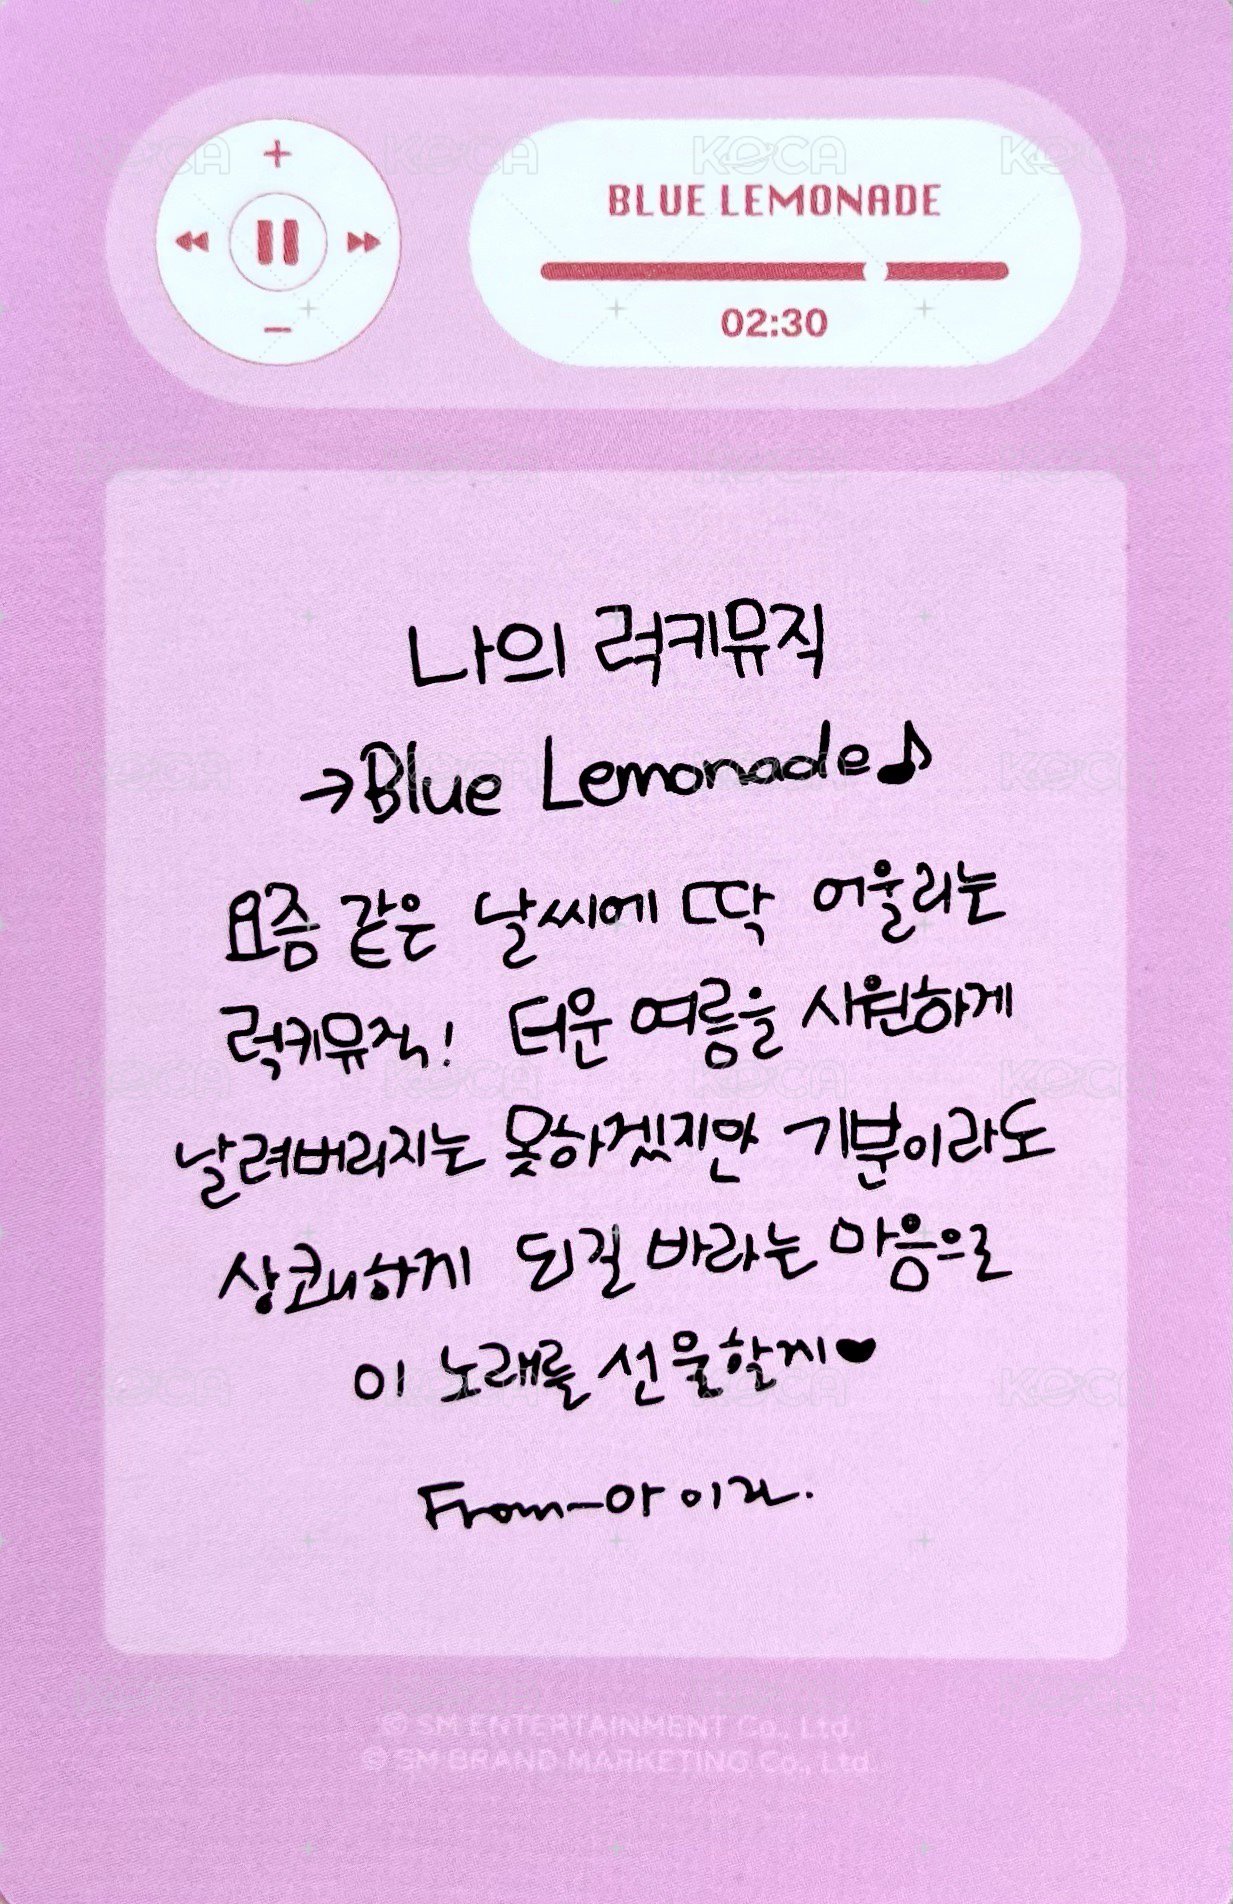 BLUE LEMONADE
02:30
나의 럭키뮤직
→Blue Lemonade♪
요즘 같은 날씨에 딱 어울리는
럭키뮤직! 더운 여름을 시원하게
날려버리지는 못하겠지만 기분이라도
상쾌하게 되길 바라는 마음으로
이 노래를 선물할게♥
From-아이린.
© SM ENTERTAINMENT Co., Ltd.
© SM BRAND MARKETING Co., Ltd.
KOCA